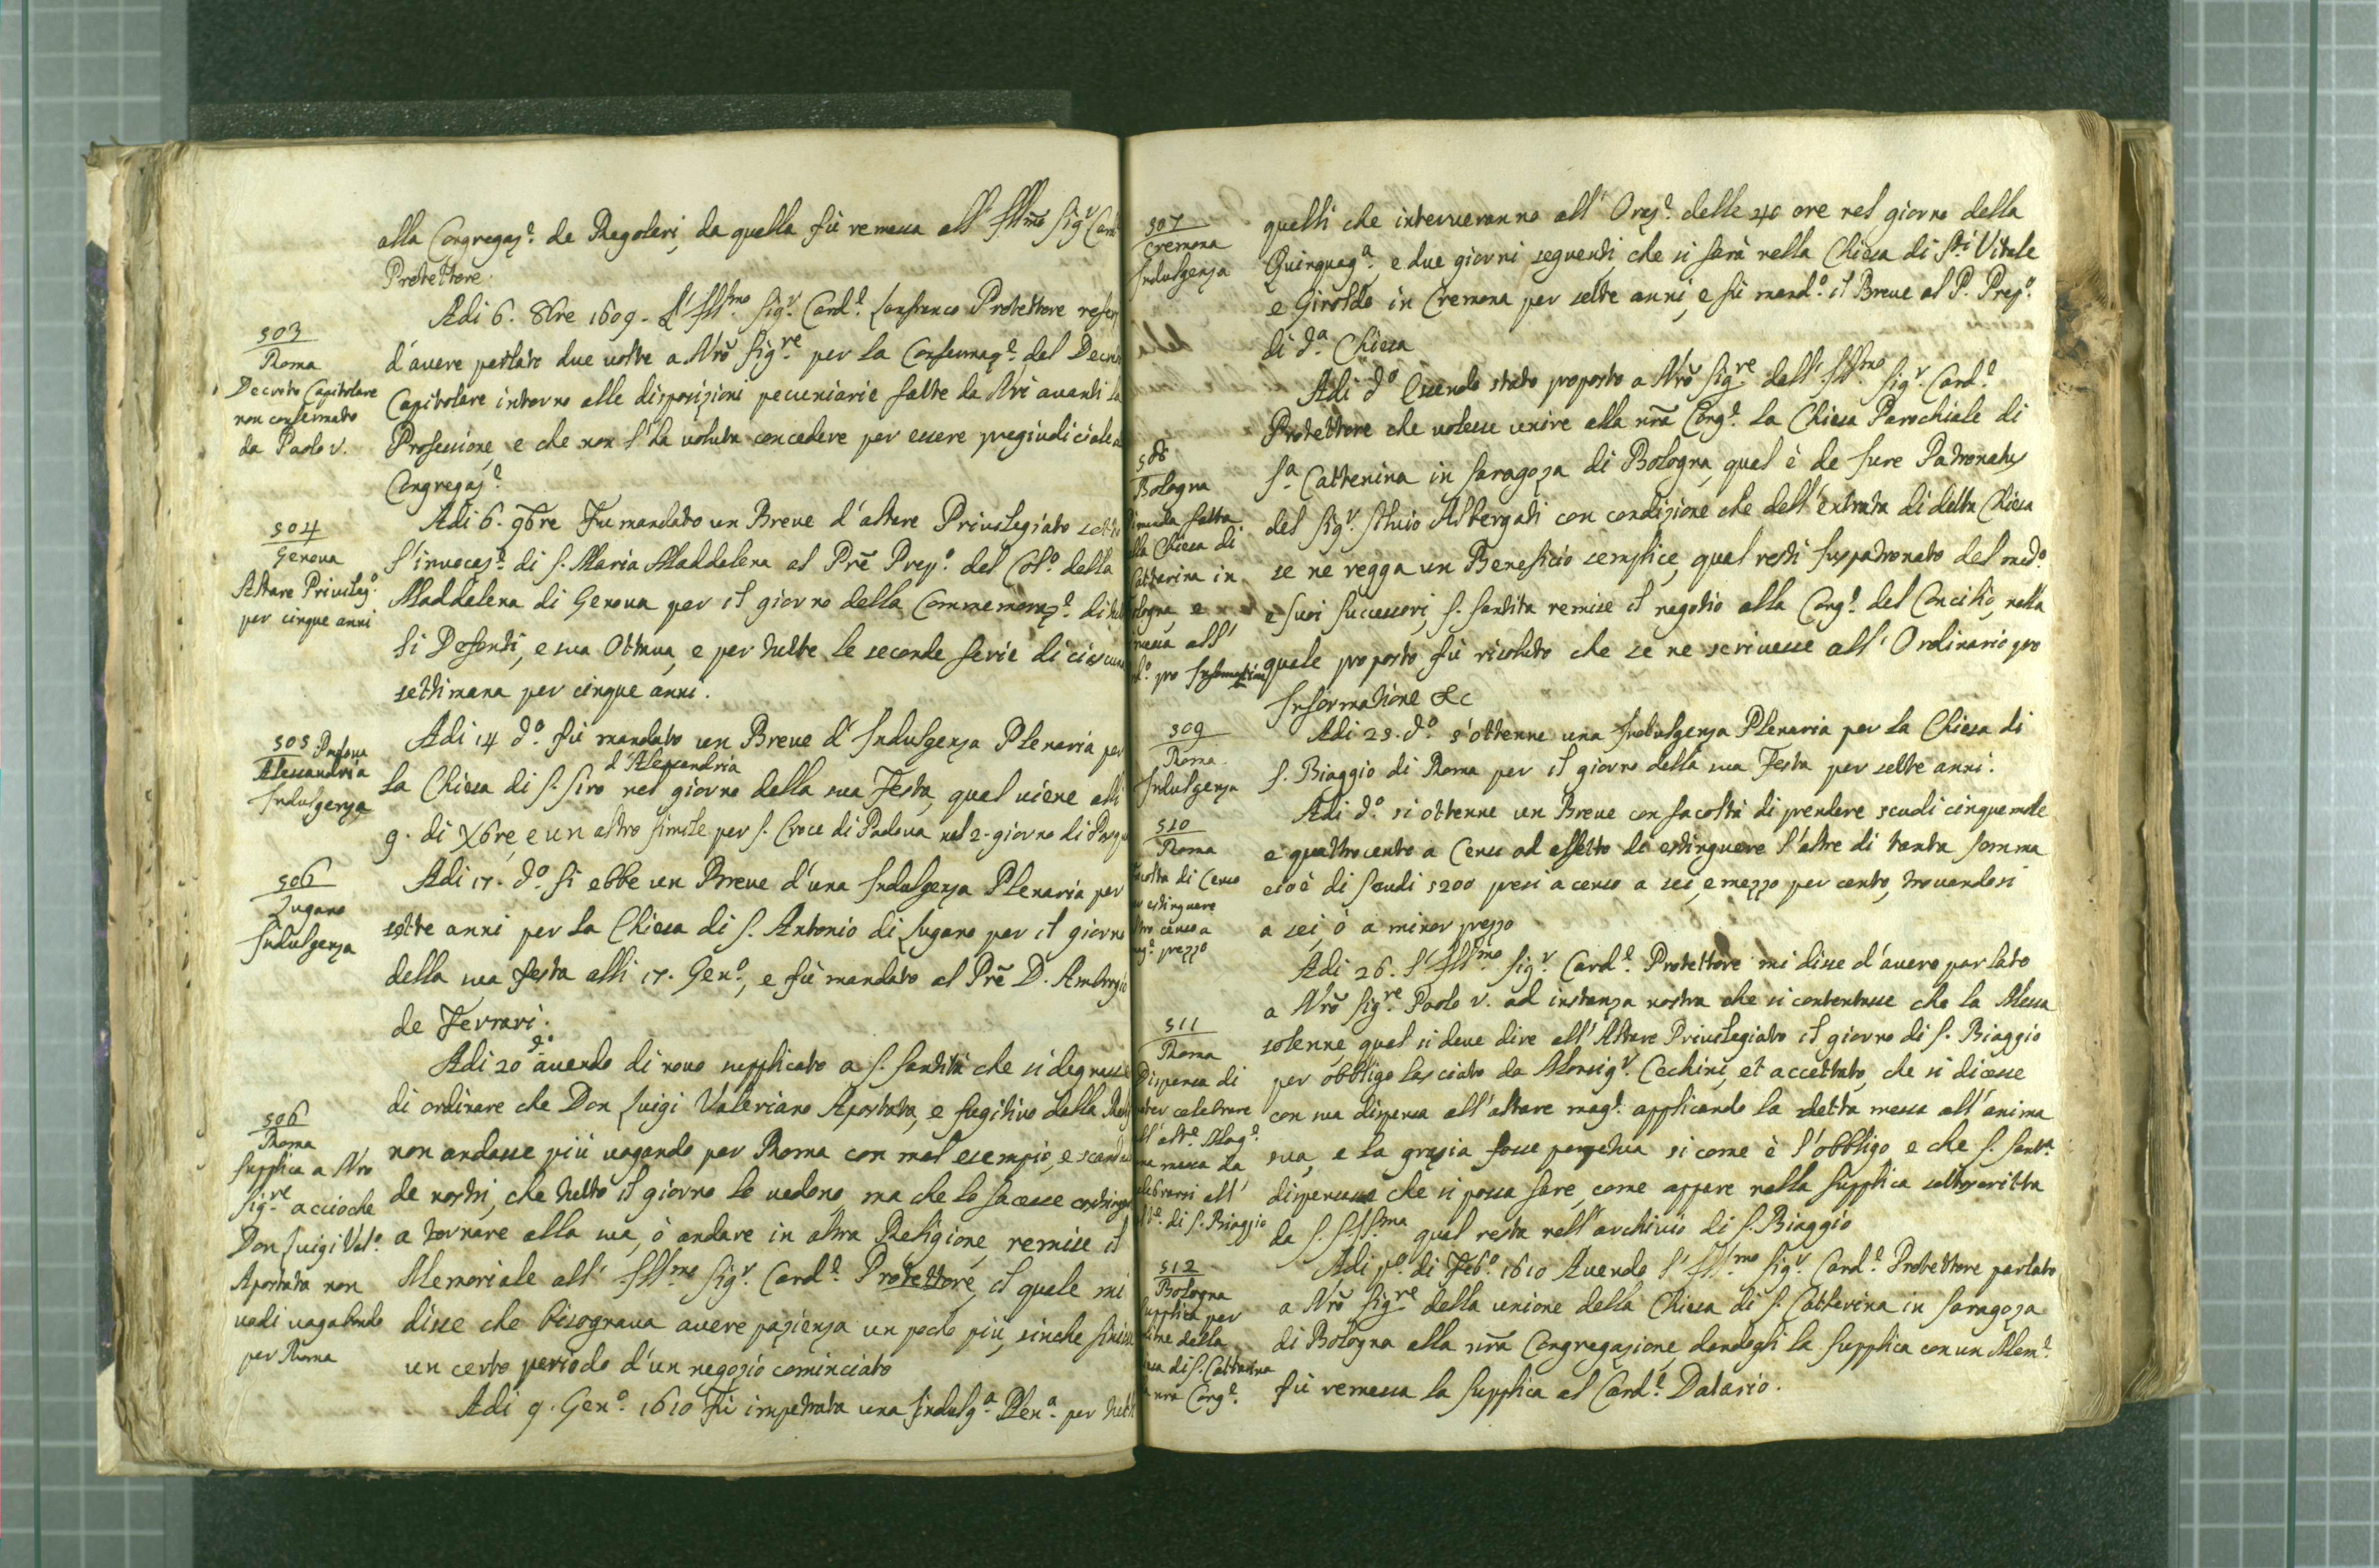 alla Congregaz.e de Regolari, da quella fù remessa all' Ill.mo Sig.r Card.
Protettore.
503
Roma
Decreto Capitolare
non confermato
da Paolo V.
Adi 6. 8bre 1609. L'Ill.mo Sig.r Card.e Lanfranco Protettore referì
d'avere parlato due volte a Nrõ Sig.re per la Confermaz.e del Decreto
Capitolare intorno alle disposizioni pecuniarie fatte da Nri avanti la
Professione, e che non l'ha voluta concedere per essere pregiudiciale a
Congregaz.e
504
Genova
Altare Privileg.o
per cinque anni
Adi 6. 9bre Fu mandato un Breve d'altare Privilegiato sotto
l'invocaz.e di S. Maria Maddalena al Prẽ Prep.o del Col.o della
Maddalena di Genova per il giorno della Commemoraz.e di tut
ti Defonti, e sua Ottava, e per tutte le seconde ferie di ciascuna
settimana per cinque anni.
505 Padova
Alessandria
Indulgenza
Adi 14 d.o fù mandato un Breve d'Indulgenza Plenaria per
d'Alessandria
la Chiesa di S. Siro nel giorno della sua Festa, qual viene alli
9. di Xbre, e un altro simile per S. Croce di Padova nel 2. giorno di Pasqua
506
Lugano
Indulgenza
Adi 17. d.o Si ebbe un Breve d'una Indulgenza Plenaria per
sette anni per la Chiesa di S. Antonio di Lugano per il giorno
della sua festa alli 17. Gen.o, e fù mandato al Prẽ D. Ambrogio
de Ferrari.
506
Roma
Supplica a Nro
Sig.re accioche
Don Luigi Val.o
Apostata non
vadi vagabondo
per Roma
Adi 20 d.o avendo di novo supplicato a S. Santità che si degnasse
di ordinare che Don Luigi Valeriano Apostata, e fugitivo della Relig
non andasse più vagando per Roma con mal esempio, e scandalo
de nostri, che tutto il giorno lo vedono, ma che lo facesse costringere
a tornare alla sua, ò andare in altra Religione, remise il
Memoriale all' Ill.mo Sig.r Card.e Protettore, il quale mi
disse che bisognava avere pazienza un poco più, sinche finisse
un certo periodo d'un negozio cominciato
Adi 9. Gen.o 1610 Fù impetrata una Indulg.a Plen.a per tutti
507
Cremona
Indulgenza
quelli che interverranno all' Oraz.e delle 40 ore nel giorno della
Quinquag.a, e due giorni seguenti, che si farà nella Chiesa di S.ti Vitale
e Giroldo in Cremona per sette anni, e fù mand.o il Breve al P. Prep.o
di d.a Chiesa
508
Bologna
fatta
lla Chiesa di
Catterina in
ologna, e
messa all'
pro Informatione
Adi d.o Essendo stato proposto a Nrõ Sig.re dall' Ill.mo Sig.r Card.e
Protettore che volesse unire alla nrã Cong.e la Chiesa Parochiale di
S.a Catterina in Saragoza di Bologna, qual è de Jure Patronatus
del Sig.r Silvio Albergati con condizione che dell' entrata di detta Chiesa
se ne regga un Beneficio semplice, qual resti Juspadronato del med.o
e suoi successori, S. Santità remise il negotio alla Cong.e del Concilio, nella
quale proposto fù risoluto che se ne scrivesse all' Ordinario pro
Informatione &c
509
Roma
Indulgenza
Adi 25. d.o s'ottenne una Indulgenza Plenaria per la Chiesa di
S. Biaggio di Roma per il giorno della sua Festa per sette anni.
510
Roma
facoltà di Censo
er estinguere
altro censo a
prezzo
Adi d.o si ottenne un Breve con facoltà di prendere scudi cinque mila
e quattrocento a Censo ad effetto di estinguere l'altre di tanta somma
cioè di scudi 5200 presi a censo a sei, e mezzo per cento, trovandosi
a sei, ò a minor prezzo
511
Roma
Dispensa di
poter celebrare
all'alt.e Mag.e
una messa da
celebrarsi all'
alt.e di S. Biaggio
Adi 26. l'Ill.mo Sig.r Card.e Protettore mi disse d'avere parlato
a Nrõ Sig.re Paolo V. ad instanza nostra che si contentasse che la Messa
solenne, qual si deve dire all' Altare Privilegiato il giorno di S. Biaggio
per obbligo lasciato da Monsig.r Cechini, et accettato, che si dicesse
con sua dispensa all'altare mag.e applicando la detta messa all'anima
sua, e la grazia fosse perpetua si come è l'obbligo, e che S. Sant.a
dispensasse che si possa fare, come appare nella supplica sottoscritta
da S. Ill.ma qual resta nell'archivio di S. Biaggio
512
Bologna
Supplica per
unione della
Chiesa di S. Catterina
a nrã Cong.e
Adi p.o di Feb.o 1610 Avendo l'Ill.mo Sig.r Card.e Protettore parlato
a Nrõ Sig.re della unione della Chiesa di S. Catterina in Saragoza
di Bologna alla nrã Congregazione, dandogli la supplica con un Mem.e
fù remessa la supplica al Card.e Datario.